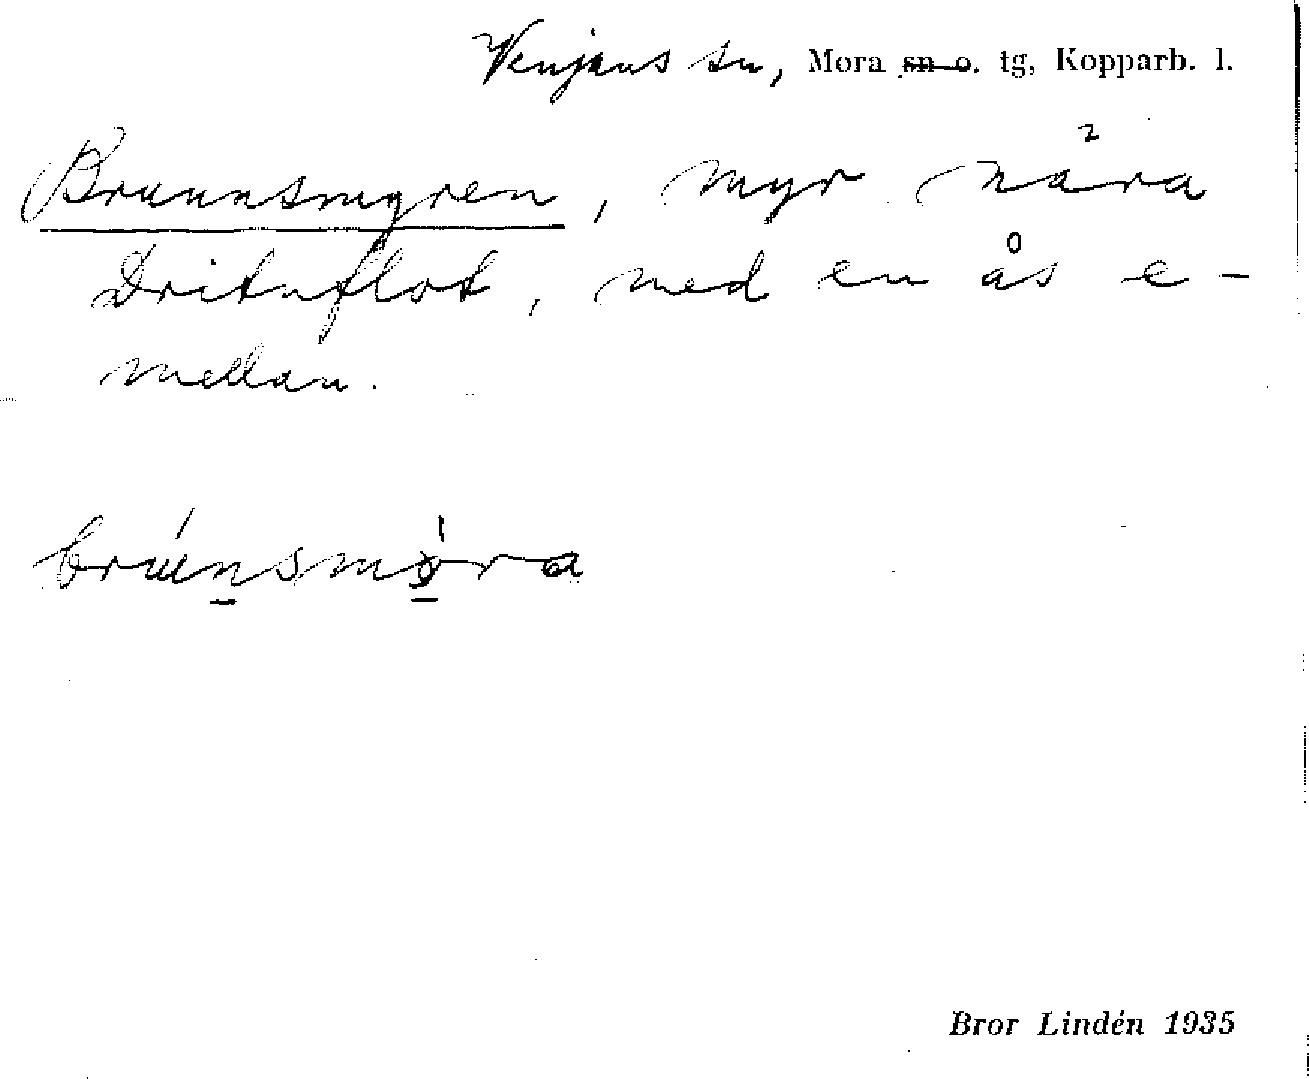 Venjans sn, Mora sn o. tg, Kopparb. l.
Brunnsmyren, myr nära
Drituflot, med en ås e-
mellan.
brúnsmöra
Bror Lindén 1935